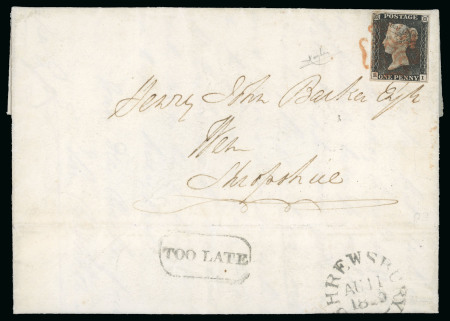 POSTAGE
ONE PENNY
Henry John Barker Esqr
Wem
Shropshire
TOO LATE
SHREWSBURY
AU 11